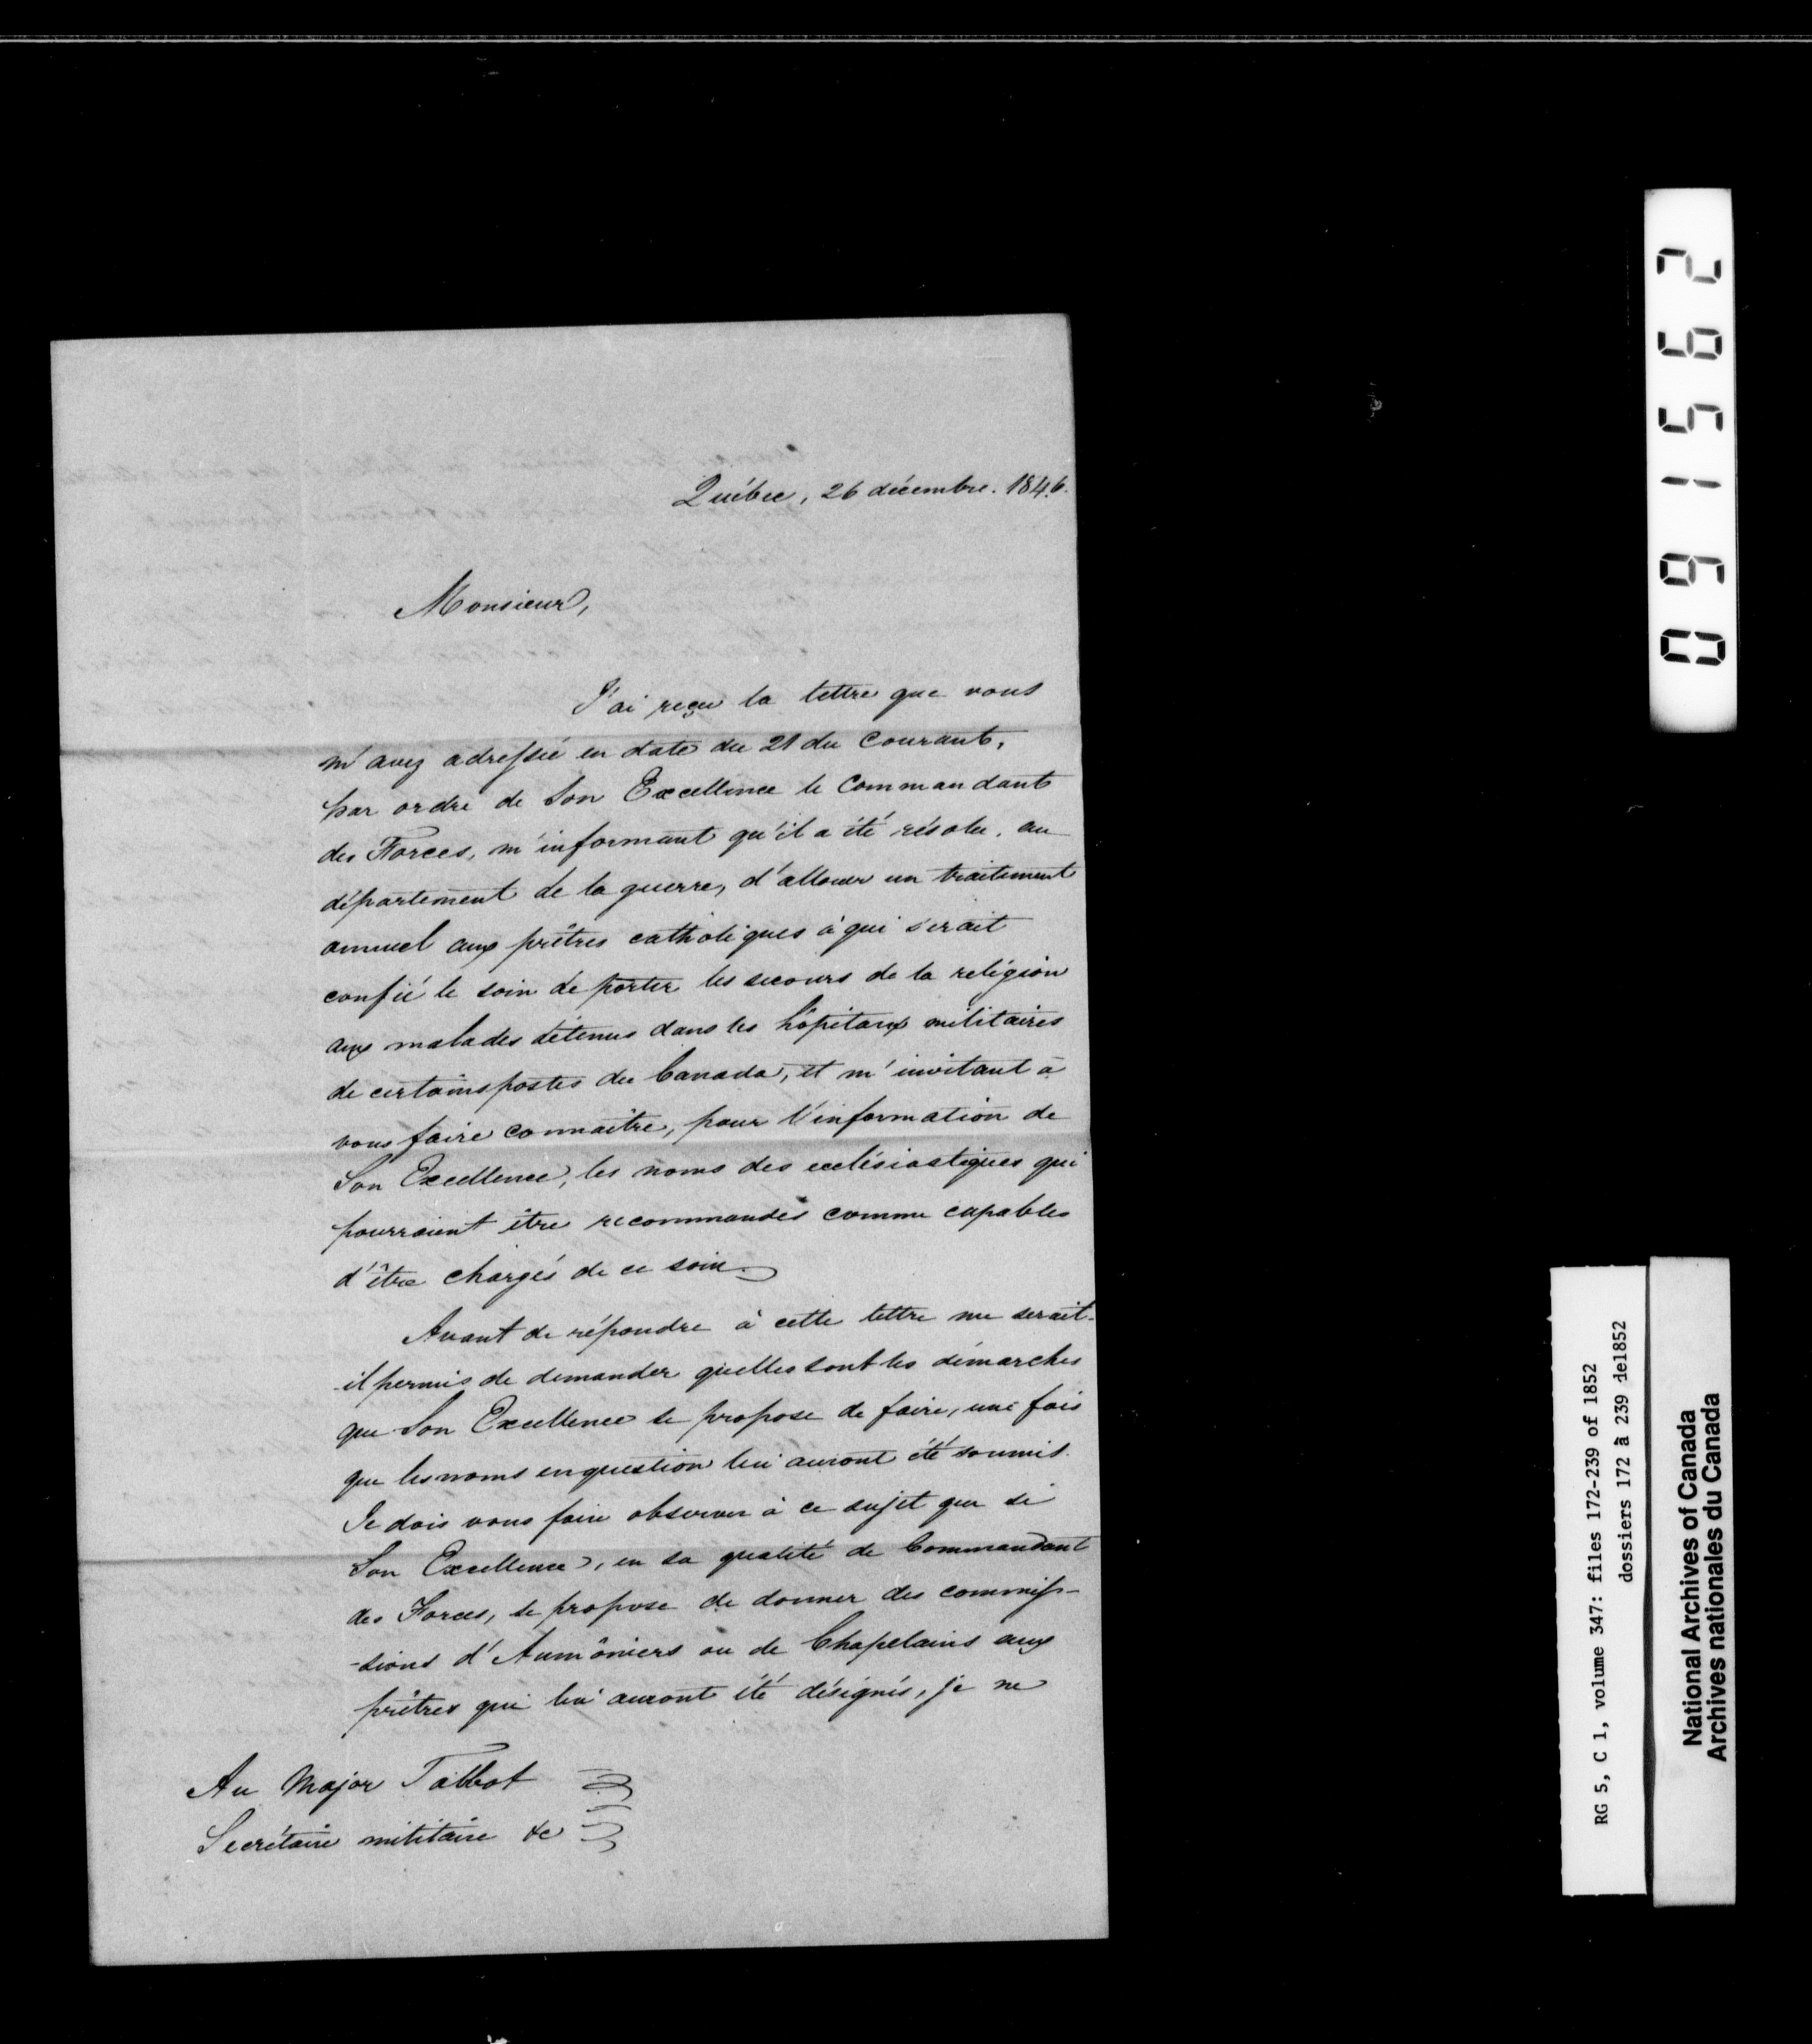 Québec, 26 décembre. 1846.
Monsieur,
J'ai reçu la lettre que vous
m'avez adressée en date du 21 du Courant,
par ordre de Son Excellence le Commandant
des Forces, m'informant qu'il a été résolu, au
département de la guerre, d'allouer un traitement
annuel aux prêtres catholiques à qui serait
confié le soin de porter les secours de la religion
aux malades détenus dans les hôpitaux militaires
de certains postes du Canada, et m'invitant à
vous faire connaître, pour l'information de
Son Excellence, les noms des ecclésiastiques qui
pourraient être recommandés comme capables
d'être chargés de ce soin.
Avant de répondre à cette lettre me serait-
-il permis de demander quelles sont les démarches
que Son Excellence se propose de faire, une fois
que les noms en question lui auront été soumis.
Je dois vous faire observer à ce sujet que si
Son Excellence, en sa qualité de Commandant
des Forces, se propose de donner des commis-
-sions d'Aumôniers ou de Chapelains aux
prêtres qui lui auront été désignés, je ne
Au Major Talbot
Secrétaire militaire &c
091562
RG 5, C 1, volume 347: files 172-239 of 1852
dossiers 172 à 239 de1852
National Archives of Canada
Archives nationales du Canada